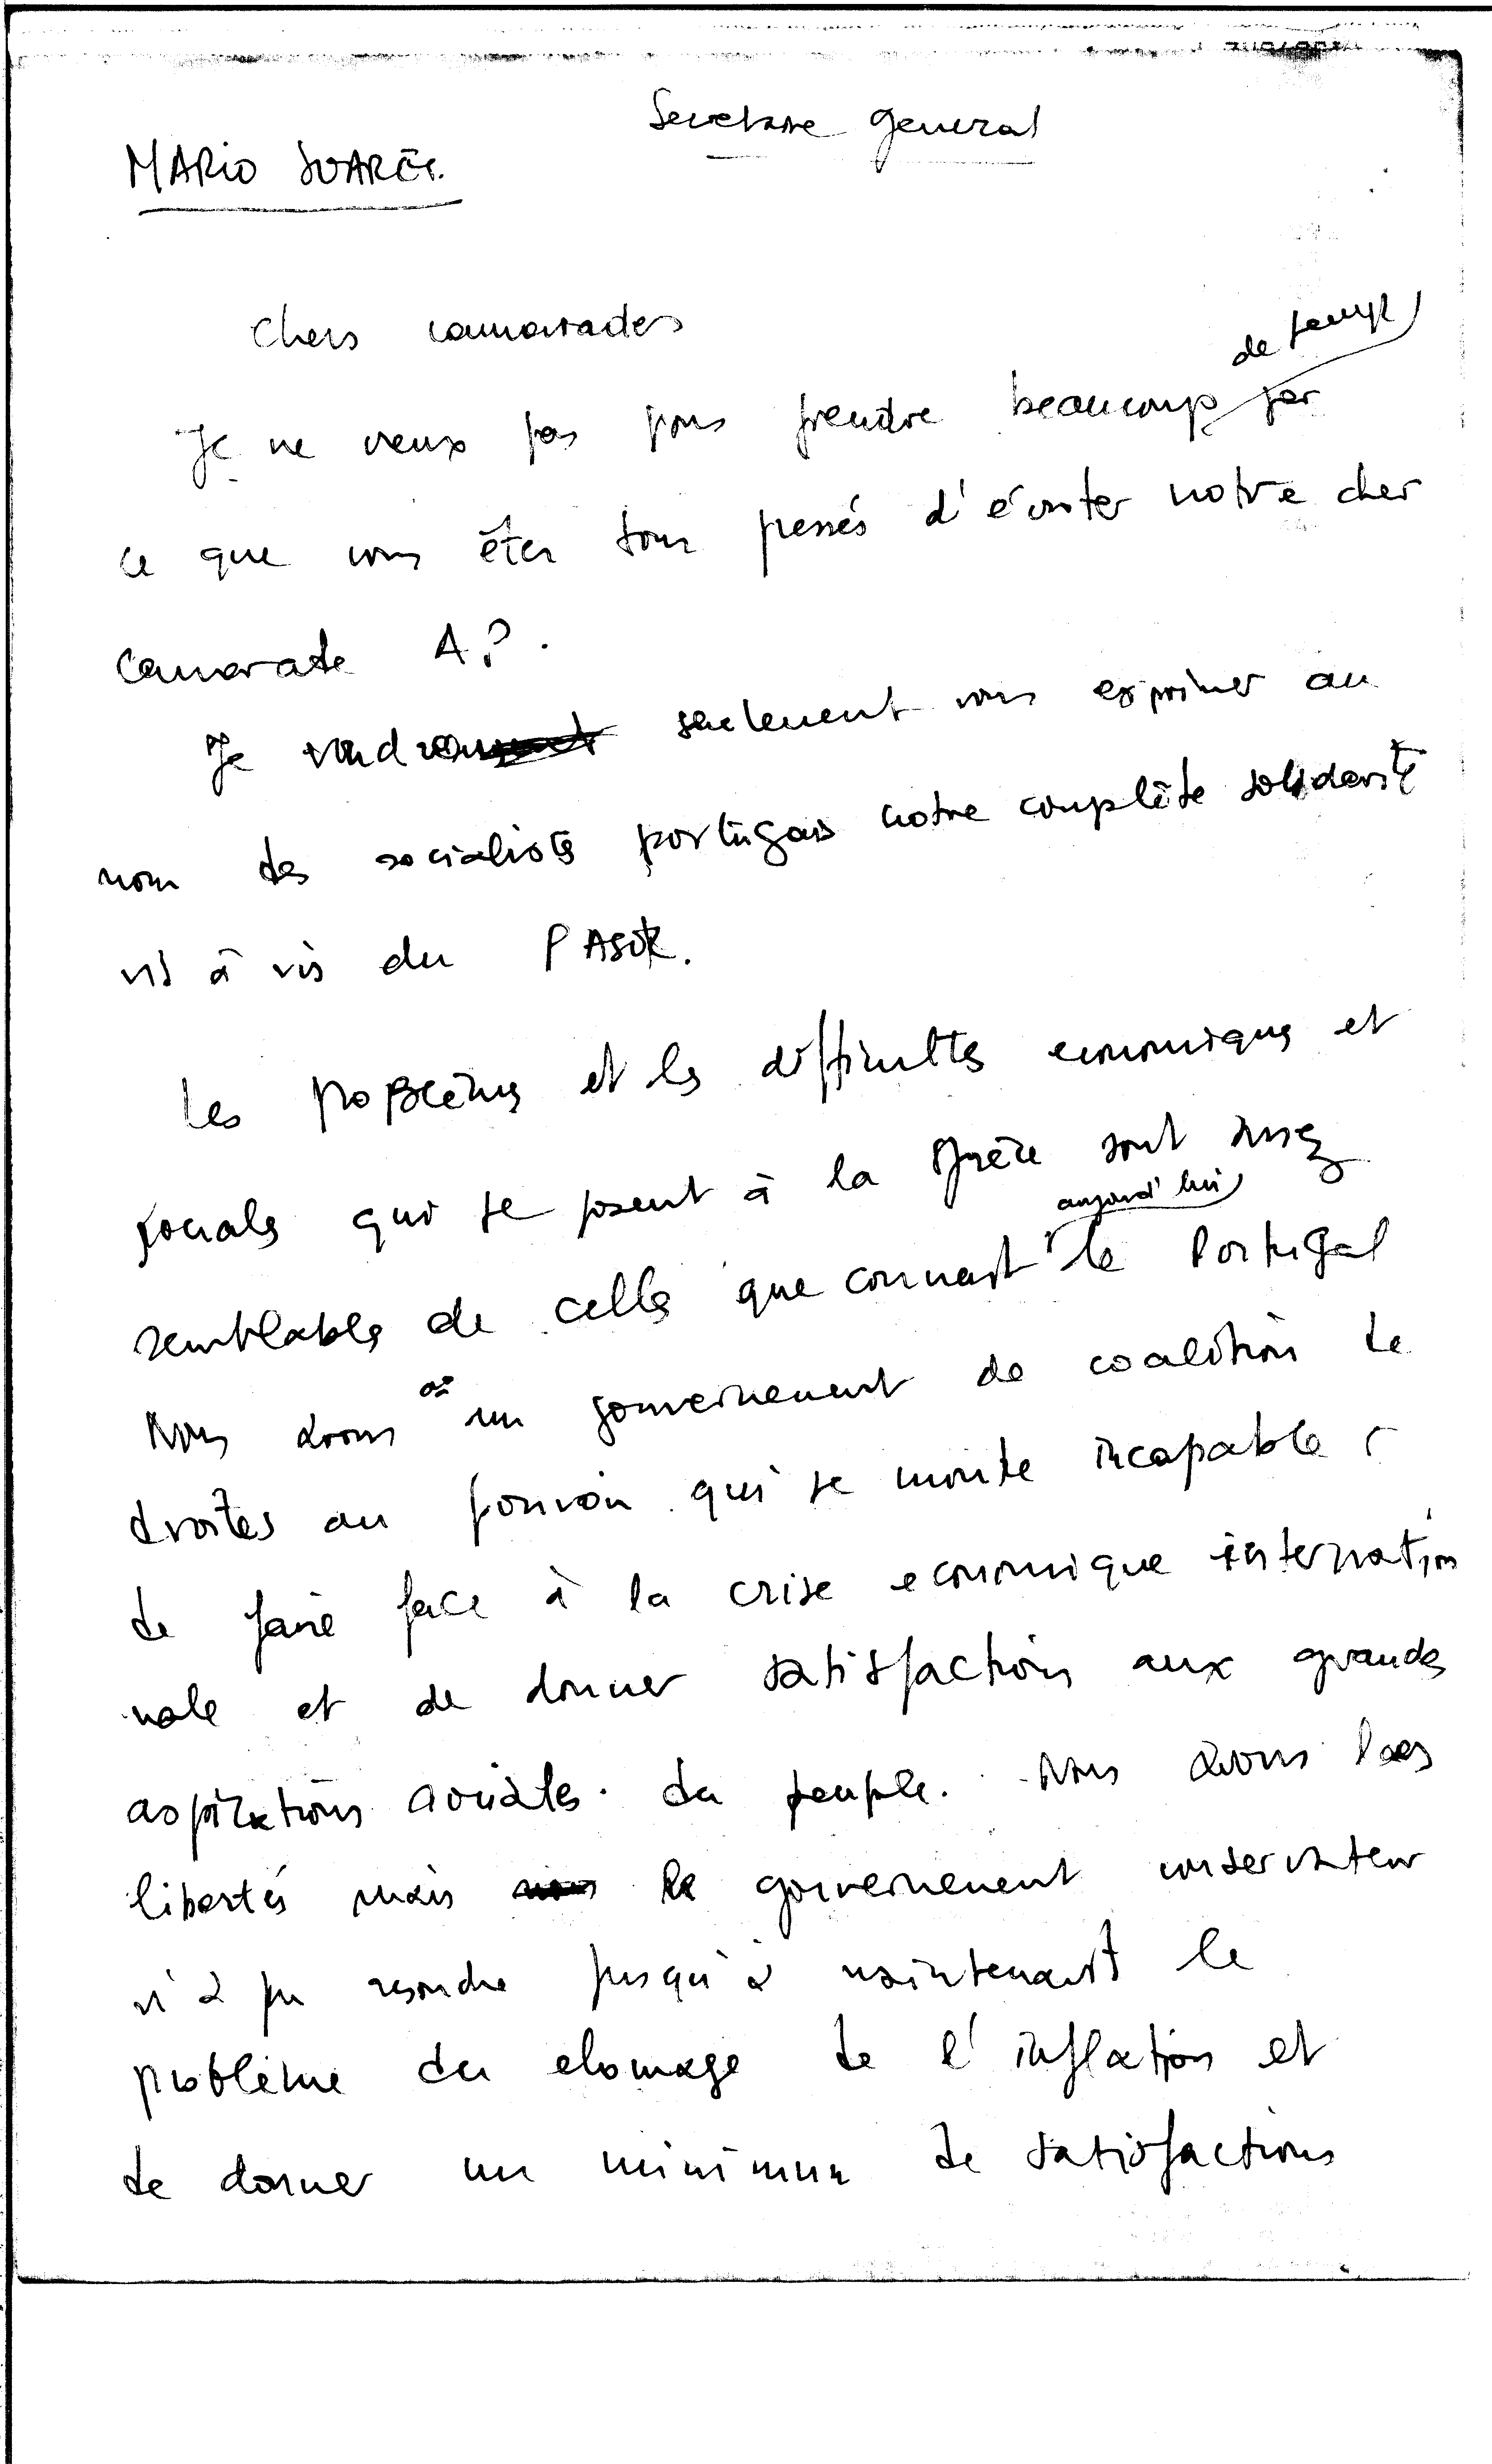 Secretaire general
MARIO SUARÈS.
Chers camarades
de temps
Je ne veux pas vous prendre beaucoup par
ce que vous êtes tous pressés d'écouter notre cher
camarade A.P.
Je voudrais seulement vous exprimer au
nom des socialistes portugais notre complète solidarité
vis à vis du PASOK.
Les problèmes et les difficultés economiques et
sociales qui se posent à la Grèce sont assez
aujourd'hui
semblables de celles que connait le Portugal
où
Nous avons un gouvernement de coalition de
droites au pouvoir qui se montre incapable
de faire face à la crise economique internatio
nale et de donner satisfactions aux grandes
aspirations sociales du peuple. Nous avons les
libertés mais le gouvernement conservateur
n'a pu resoudre jusqu'à maintenant le
problème du chomage de l'inflation et
de donner un minimum de satisfactions